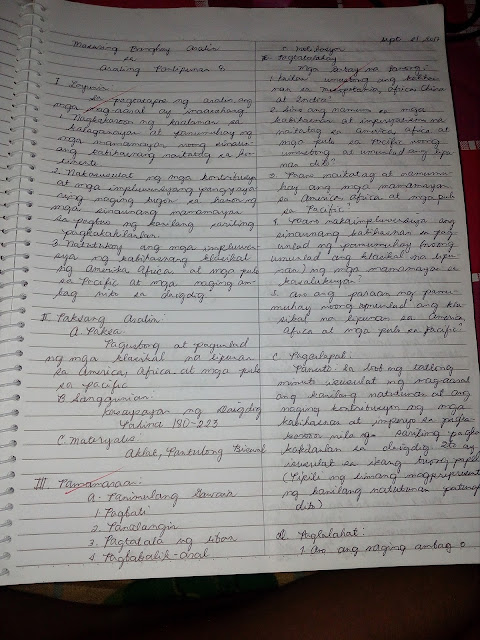 Masusing Banghay Aralin
sa
Araling Panlipunan 8
I Layunin
sa pagtatapos ng aralin ang
mga mag-aaral ay inaasahang
1. Nagkakaroon ng kaalaman sa
kalagayan at pamumuhay ng
mga mamamayan noong sinaun-
ang kabihasnang naitatag sa
2. Nakasusulat ng mga kontribusyo
at mga impluwensiyang
naging bunga sa
mga sinaunang mamamayan
sa pagtuo ng kanilang sariling
pagkakakilanlan.
3. Natutukoy ang mga impluwen-
siya ng kabihasnang klasikal
ng Amerika, Africa at mga pulo
sa Pacific at mga naging am-
bag nito sa daigdig.
II Paksang Aralin:
A. Paksa:
Pagusbong at pagunlad
ng mga klasikal na lipunan
sa America, Africa at mga pulo
sa pacific
B. Sanggunian:
Kasaysayan ng Daigdig
Pahina 180-223
C. Materyales:
Aklat, Pantulong Biswal
III Pamamaraan:
A. Panimulang Gawain
1. Pagbati
2. Panalangin
3. Pagtatala ng liban
4. Pagbabalik-aral
Sept 21 2017
B. Pagtatalakay
Mga gabay na tanong:
1. Kailan umusbong ang kabihas-
nan sa Mesopotamia, Africa, China
at India?
2. Sino ang namuno sa mga
kabihasnan at imperyo na
naitatag sa America, Africa at
mga pulo sa Pacific noong
umusbong at umunlad ang lipu-
nan dito?
3. Paano naitatag at namumu-
hay ang mga mamamayan
sa America, Africa at mga pulo
sa Pacific?
4. Paano nakaimpluwensiya ang
sinaunang kabihasnan sa pag-
unlad ng pamumuhay (noong
umunlad ang klasikal na lipu-
nan) ng mga mamamayan sa
kasalukuyan?
5. Ano ang paraan ng pamu-
muhay noong umunlad ang kla-
sikal na lipunan sa America,
Africa at mga pulo sa pacific?
C. Paglalapat:
Panuto: Sa loob ng tatlong
minuto isusulat ng mag-aaral
ang kanilang natutunan at ang
naging kontribusyon ng mga
kabihasnan at imperyo sa pagka-
karoon nila ng sariling pagka-
kakilanlan sa daigdig. Ito ay
isusulat sa isang buong papel.
(Pipili ng limang magprepresent
ng kanilang natutunan patungo
dito)
d) Paglalahat:
1. Ano ang naging ambag o